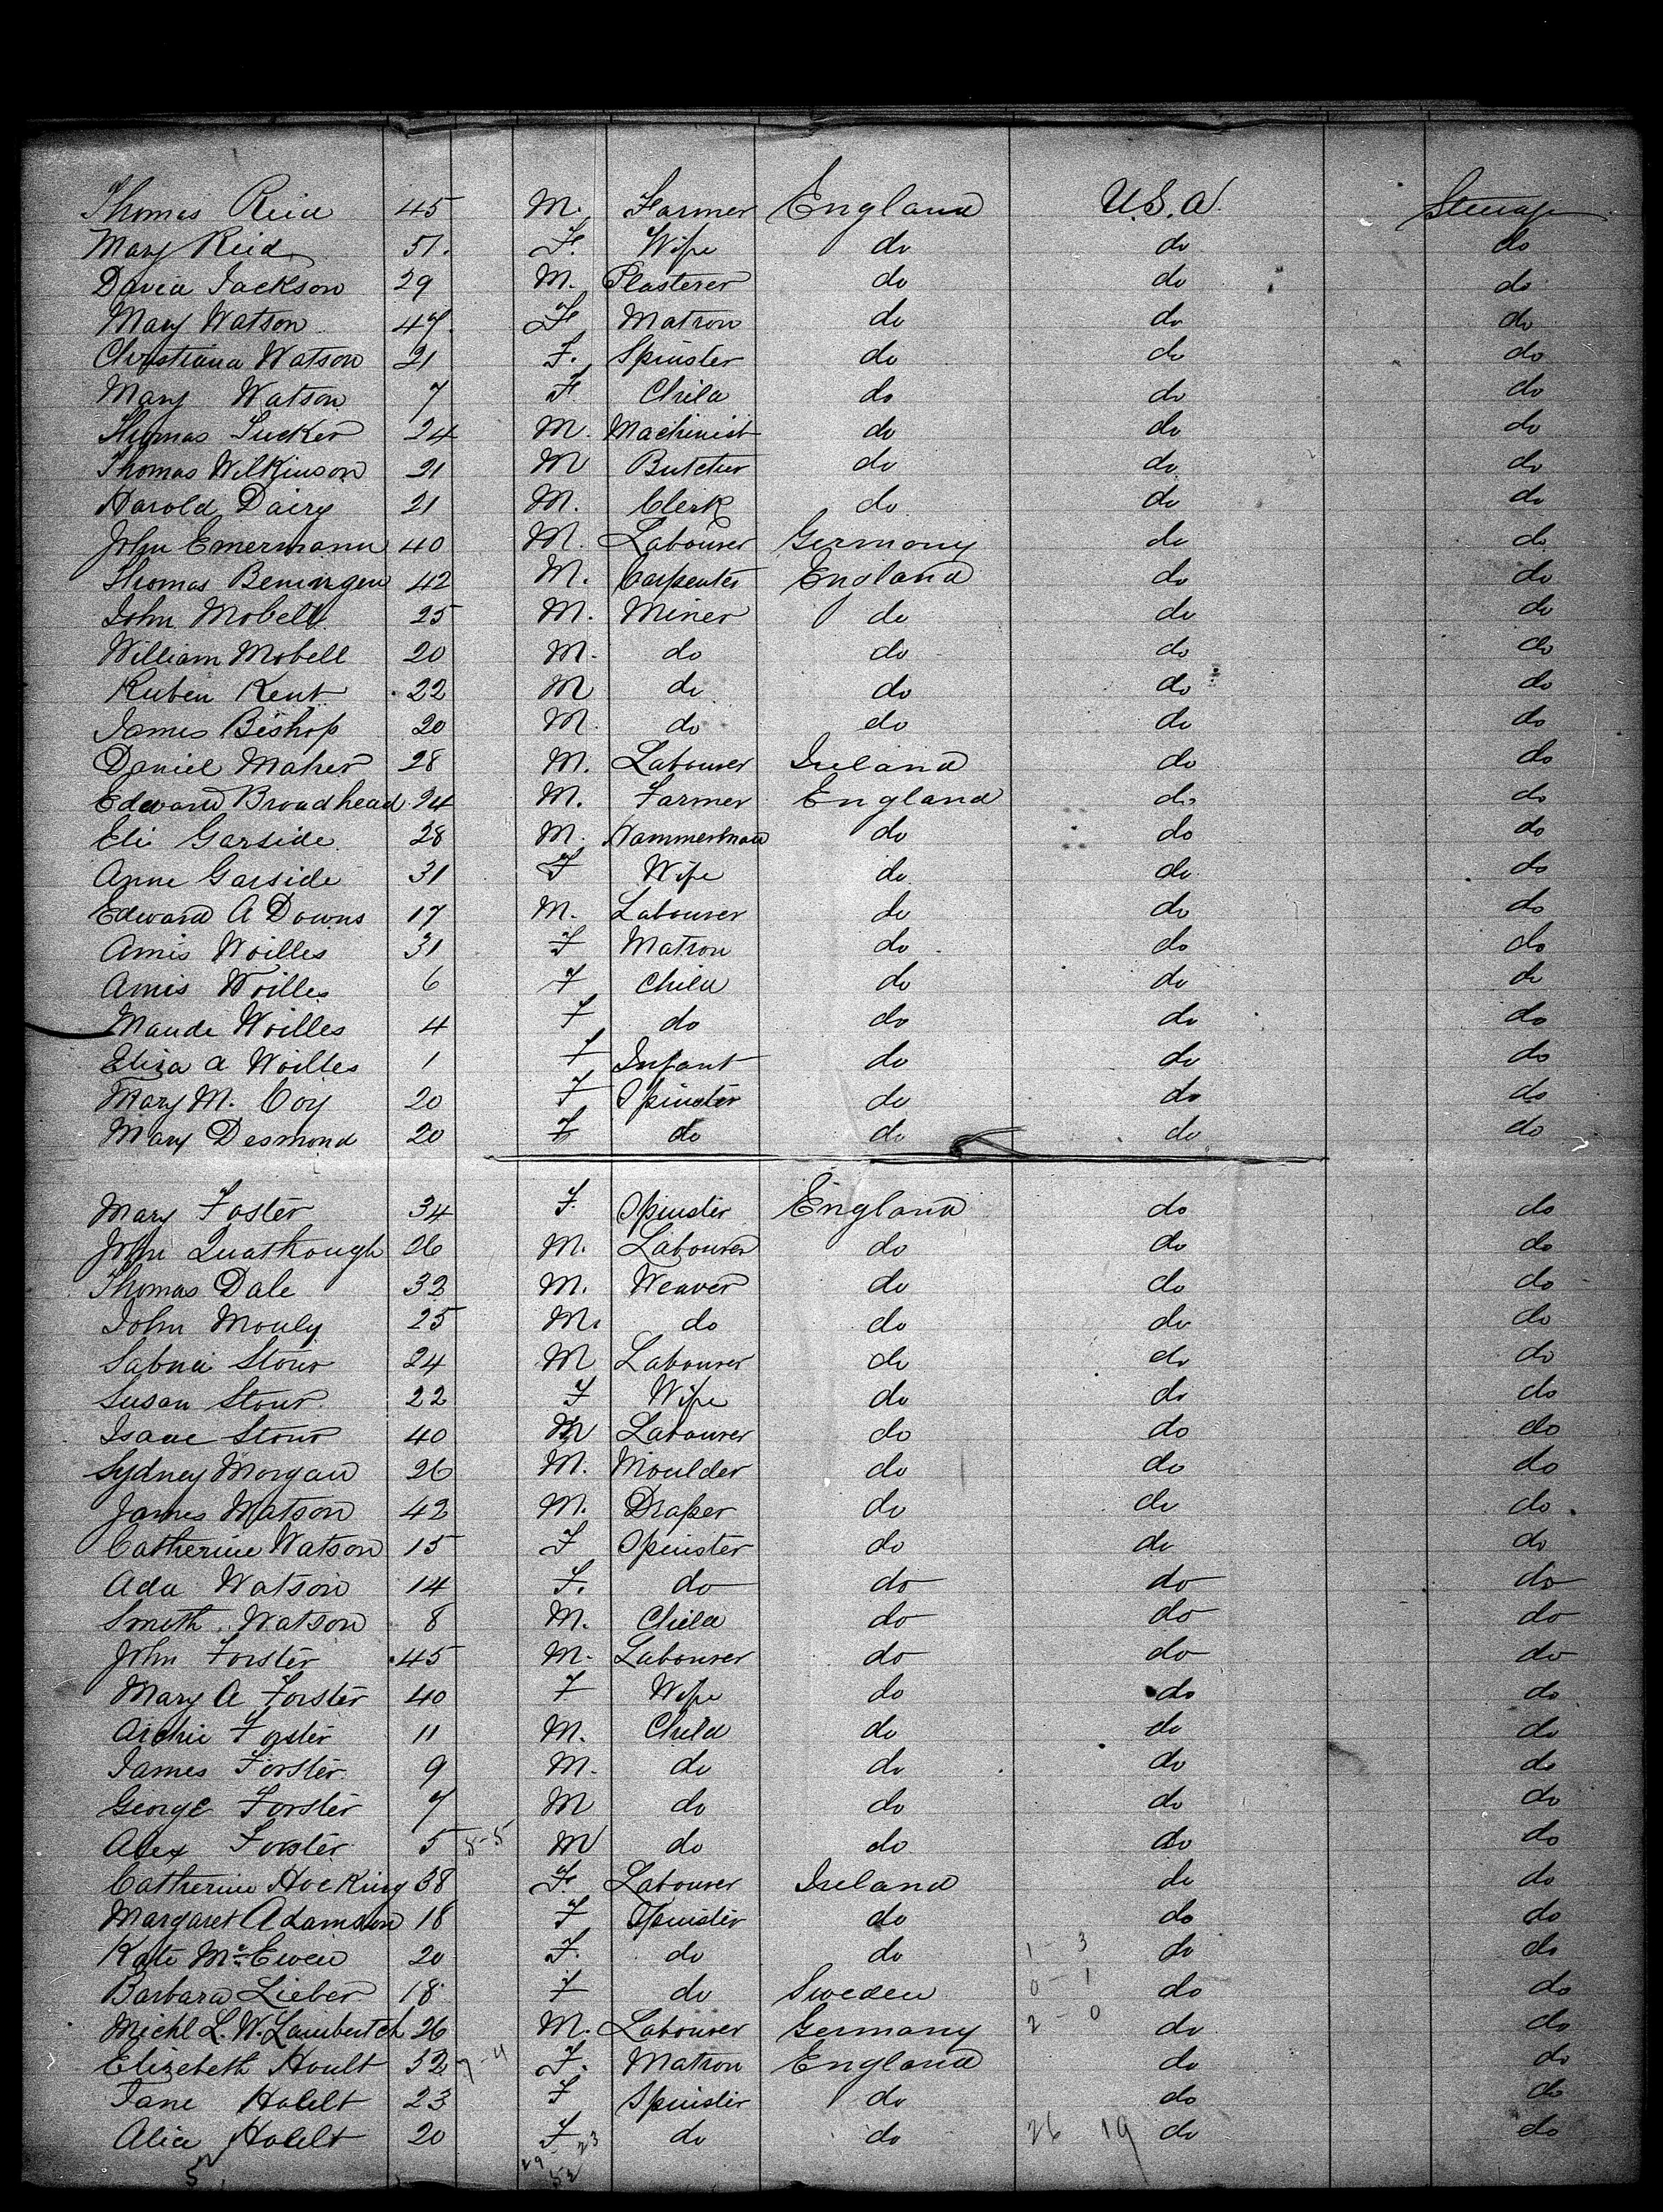 Thomas Reid 45 M. Farmer England U.S.A. Steerage
Mary Reid 51. F. Wife do do do
David Jackson 29 M. Plasterer do do do
Mary Watson 47. F Matron do do do
Christiana Watson 21 F. Spinster do do do
Mary Watson 7 F Child do do do
Thomas Tucker 24 M. Machinist do do do
Thomas Wilkinson 21 M Butcher do do do
Harold Dairy 21 M. Clerk do do do
John Emermann 40 M. Labourer Germany do do
Thomas Beningen 42 M. Carpenter England do do
John Mobell 25 M. Miner do do do
William Mobell 20 M. do do do do
Ruben Kent 22 M do do do do
James Bishop 20 M. do do do do
Daniel Maher 28 M. Labourer Ireland do do
Edward Broadhead 24 M. Farmer England do do
Eli Garside 28 M. Hammerman do do do
Anne Garside 31 F Wife do do do
Edward A Downs 17 M. Labourer do do do
Amis Woilles 31 F Matron do do do
Amis Woilles 6 F Child do do do
Maude Woilles 4 F do do do do
Eliza A Woilles 1 F Infant do do do
Mary M. Coy 20 F Spinster do do do
Mary Desmond 20 F do do do do
Mary Foster 34 F. Spinster England do do
John Quathough 26 M. Labourer do do do
Thomas Dale 32 M. Weaver do do do
John Mouly 25 M. do do do do
Stour 24 M Labourer do do do
Susan Stour 22 F Wife do do do
Isaac Stour 40 M Labourer do do do
Sydney Morgan 26 M. Moulder do do do
James Watson 42 M. Draper do do do
Catherine Watson 15 F Spinster do do do
Ada Watson 14 F. do do do do
Smith Watson 8 M. Child do do do
John Forster 45 M. Labourer do do do
Mary A Forster 40 F Wife do do do
Archie Forster 11 M. Child do do do
James Forster 9 M. do do do do
George Forster 7 M do do do do
Alex Forster 5 5-5 M do do do do
Catherine Hocking 38 F. Labourer Ireland do do
Margaret Adamson 18 F Spinster do do do
Kate McEwen 20 F. do do 1-3 do do
Barbara Lieber 18 F do Sweden 0-1 do do
Michl L. W. Lambertch 26 M. Labourer Germany 2-0 do do
Elizebeth Hoult 32 7-4 F. Matron England do do
Jane Holelt 23 F Spinster do do do
Alice Holelt 20 F do do 26 19 do do
5 29 23
52